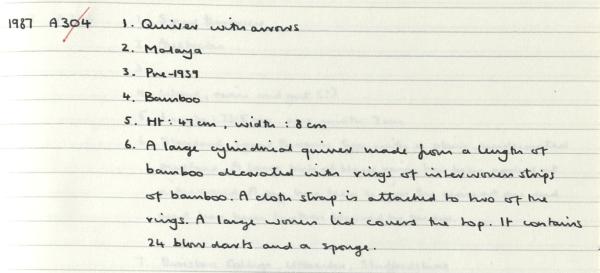 1987 A304 1. Quiver with arrows
2. Malaya
3. Pre-1939
4. Bamboo
5. Ht: 47cm, width: 8cm
6. A large cylindrial quiver made from a length of
bamboo decorated with rings of interwoven strips
of bamboo. A cloth strap is attached to two of the
rings. A large woven lid covers the top. It contains
24 blow darts and a sponge.